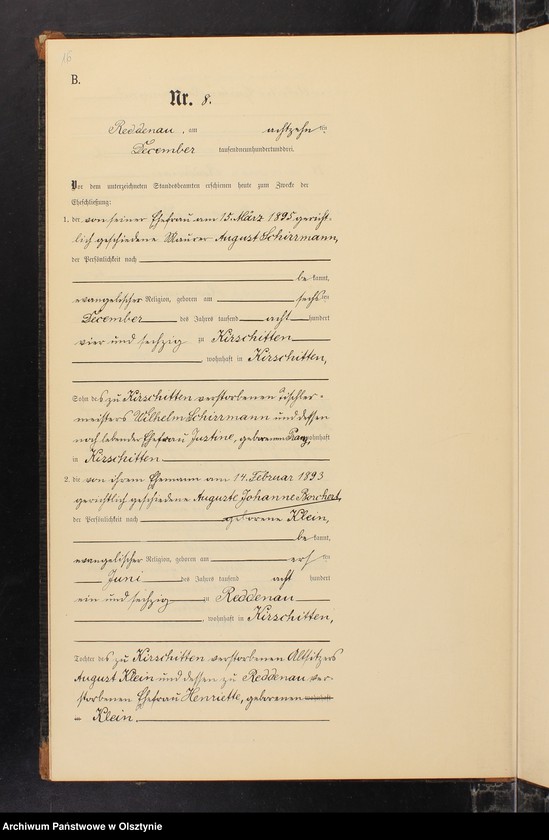 16
B.
Nr. 8.
Reddenau, am achtzehn ten
December tausendneunhundertunddrei.
Vor dem unterzeichneten Standesbeamten erschienen heute zum Zwecke der
Eheschließung:
1. der von seiner Ehefrau am 15. März 1895 gericht-
lich geschiedene Maurer August Schirrmann,
der Persönlichkeit nach
be kannt,
evangelischer Religion, geboren am sechsten
December des Jahres tausend acht hundert
vier und sechzig zu Kirschitten
, wohnhaft in Kirschitten,
Sohn des zu Kirschitten verstorbenen Tischler-
meisters Wilhelm Schirrmann und dessen
noch lebender Ehefrau Justine, geborenen wohnhaft
in Kirschitten
2. die von ihrem Ehemann am 14. Februar 1893
gerichtlich geschiedene Auguste Johanne Borchert,
der Persönlichkeit nach geborene Klein,
be kannt,
evangelischer Religion, geboren am ten
Juni des Jahres tausend acht hundert
ein und sechzig zu Reddenau
, wohnhaft in Kirschitten,
Tochter des zu Kirschitten verstorbenen Altsitzers
August Klein und dessen zu Reddenau ver-
storbenen Ehefrau Henriette, geborenen wohnhaft
in Klein.
Archiwum Państwowe w Olsztynie